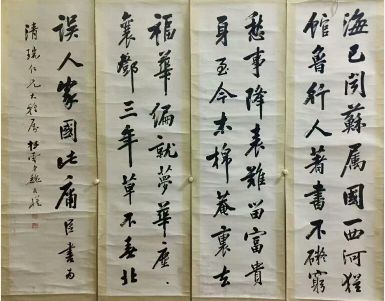 海已聞蘇属國西河猶
館魯行人著書不礙窮
愁事降表難留富貴
身至今木棉菴裏去
福華編就夢華塵
襄鄧三年草不春北
誤人家國此庸臣書為
清瑞仁兄大雅属